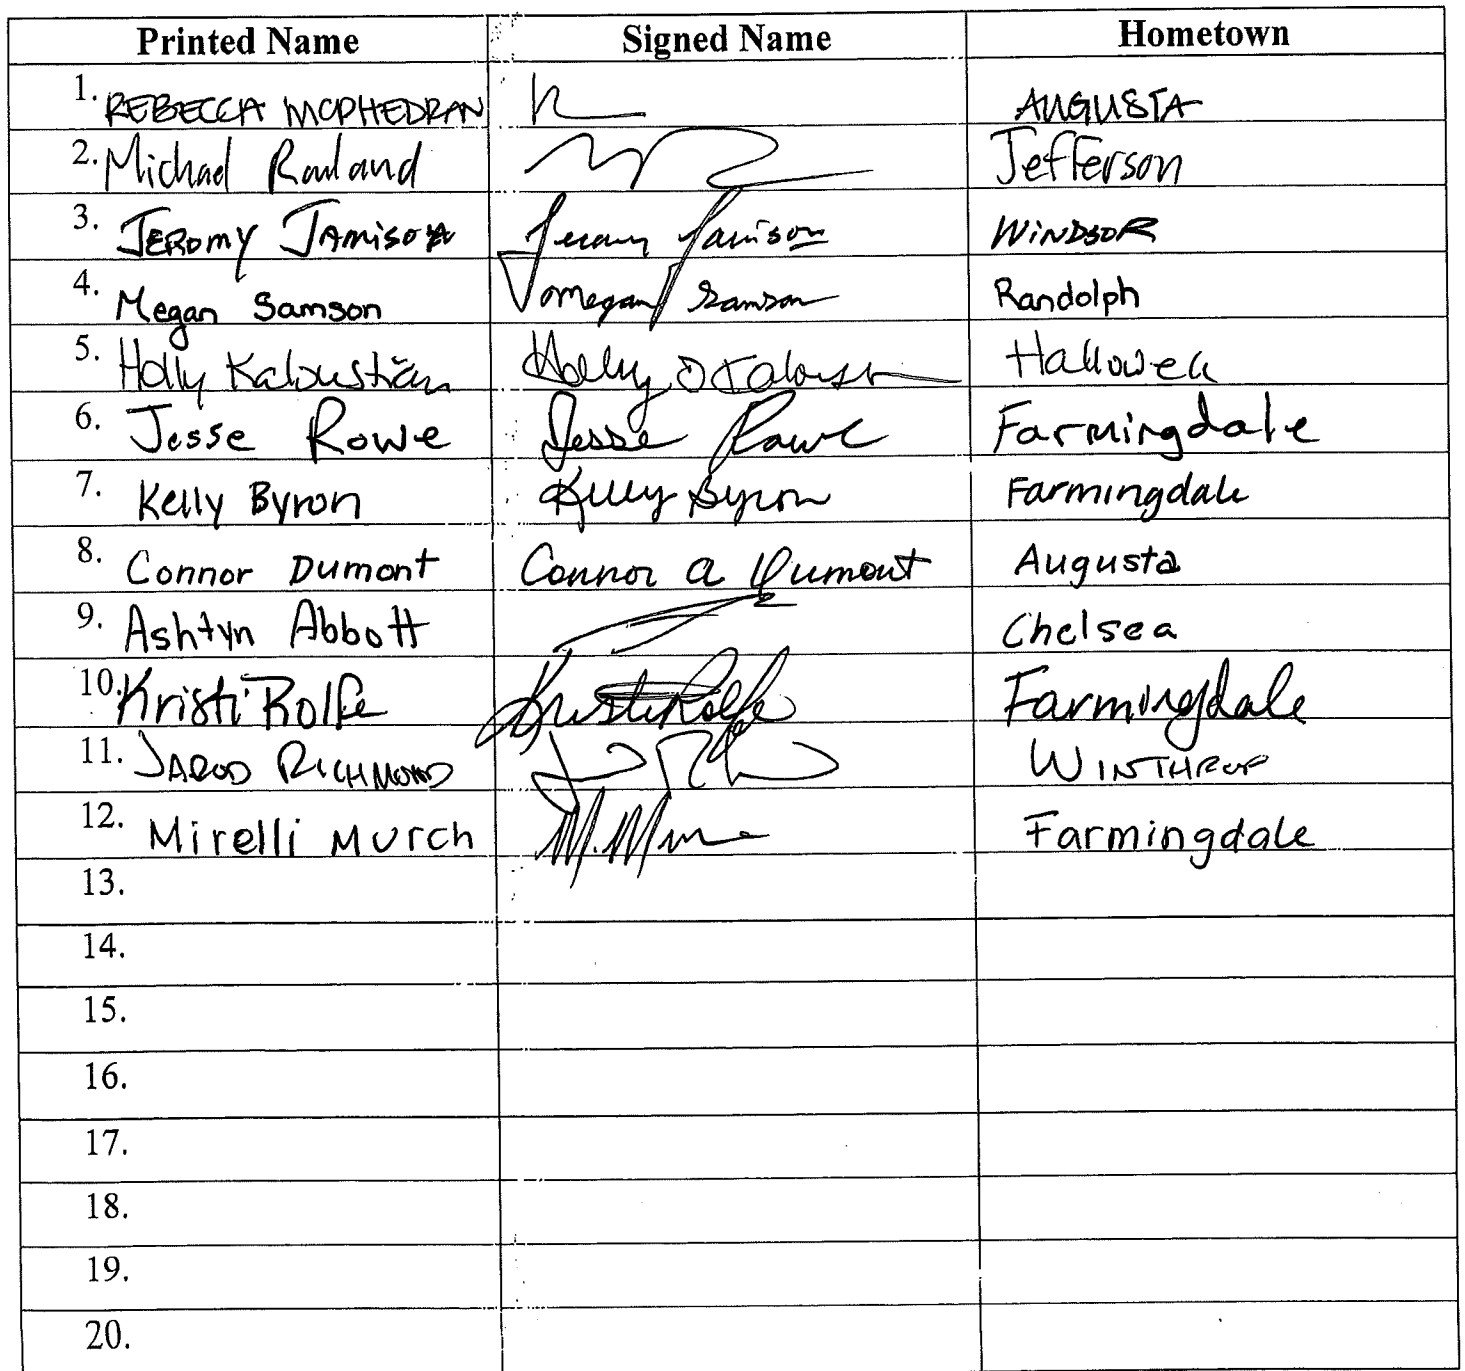 Printed Name Signed Name Hometown
1. REBECCA MCPHEDRAN AUGUSTA
2. Michael Rowland Jefferson
3. JEROMY JAMISON Jeromy Jamison WINDSOR
4. Megan Samson Megan Samson Randolph
5. Holly Kaloustian Holly Hallowell
6. Jesse Rowe Jesse Rowe Farmingdale
7. Kelly Byron Kelly Byron Farmingdale
8. Connor Dumont Connor A Dumont Augusta
9. Ashtyn Abbott Chelsea
10. Kristi Rolfe Kristi Rolfe Farmingdale
11. JAROD RICHMOND WINTHROP
12. Mirelli Murch Farmingdale
13.
14.
15.
16.
17.
18.
19.
20.